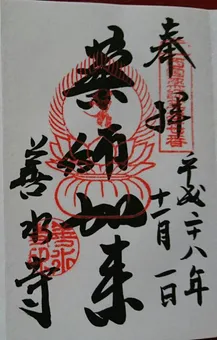 奉拝
平成二十八年
十一月一日
薬師如来
善水寺